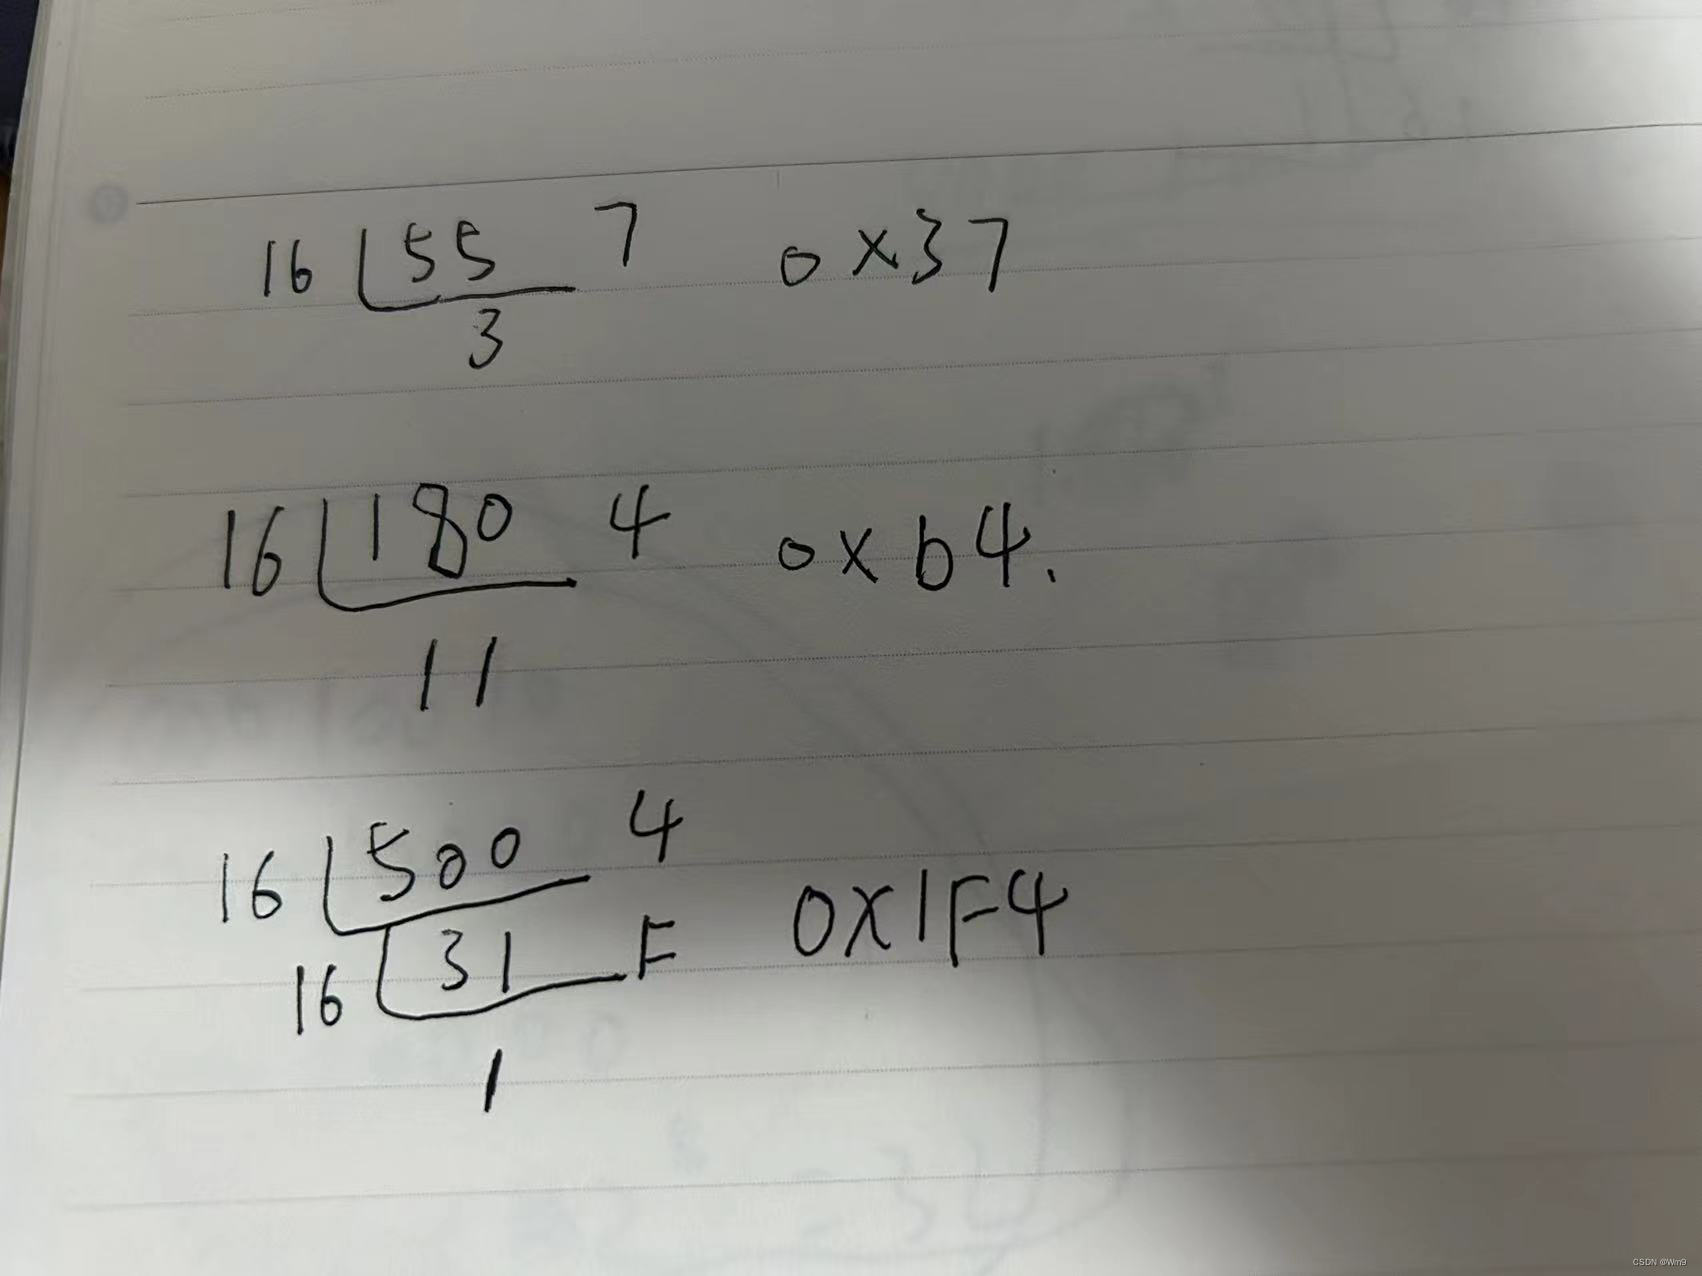 16 55 7 0x37
3
16 180 4 0xb4.
11
16 500 4
16 31 F 0X1F4
1
CSDN @Wm9